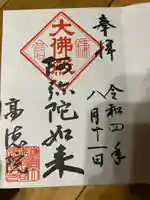 奉拝
令和四年
八月十一日
大佛
阿弥陀如来
高徳院